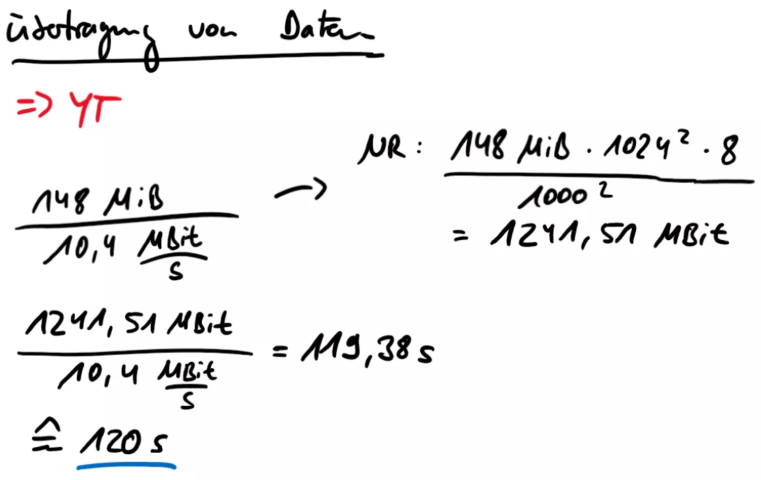 Übertragung von Daten
=> YT
148 MiB / 10,4 MBit/s → NR: 148 MiB · 1024² · 8 / 1000²
= 1241,51 MBit
1241,51 MBit / 10,4 MBit/s = 119,38 s
≙ 120 s